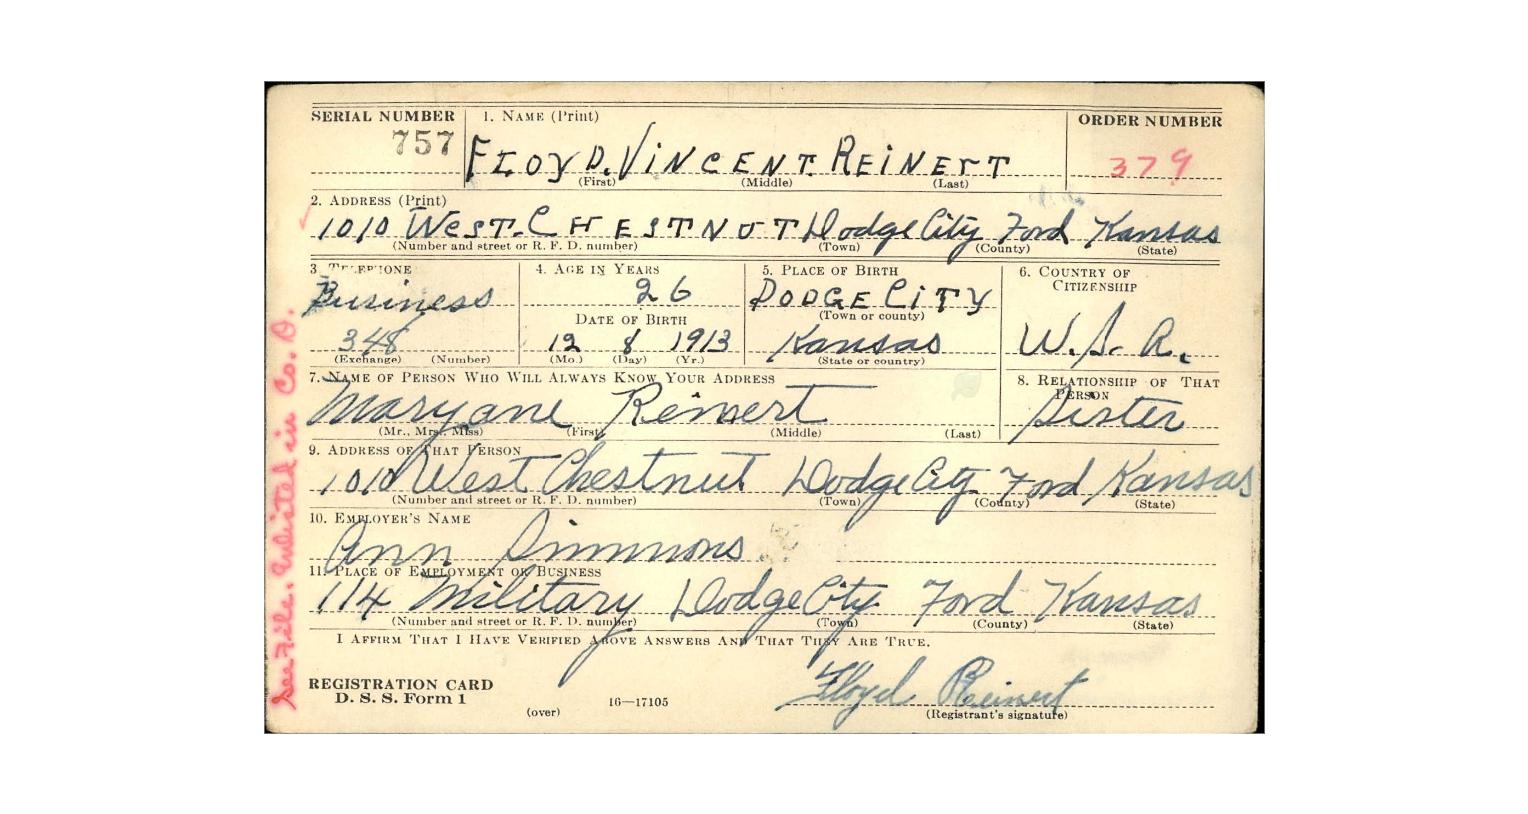 SERIAL NUMBER 1. NAME (Print) ORDER NUMBER
757 FLOYD. VINCENT. REINERT 379
(First) (Middle) (Last)
2. ADDRESS (Print)
1010 WEST. CHESTNUT Dodge City Ford Kansas
(Number and street or R. F. D. number) (Town) (County) (State)
3. TELEPHONE 4. AGE IN YEARS 5. PLACE OF BIRTH 6. COUNTRY OF
CITIZENSHIP
Business 26 DODGE CITY
(Town or county)
DATE OF BIRTH
348 12 8 1913 Kansas U.S.A.
(Exchange) (Number) (Mo.) (Day) (Yr.) (State or country)
7. NAME OF PERSON WHO WILL ALWAYS KNOW YOUR ADDRESS 8. RELATIONSHIP OF THAT
PERSON
Maryane Reinert Sister
(Mr., Mrs., Miss) (First) (Middle) (Last)
9. ADDRESS OF THAT PERSON
1010 West Chestnut Dodge City Ford Kansas
(Number and street or R. F. D. number) (Town) (County) (State)
10. EMPLOYER'S NAME
Ann Simmons
11. PLACE OF EMPLOYMENT OR BUSINESS
114 Military Dodge City Ford Kansas
(Number and street or R. F. D. number) (Town) (County) (State)
I AFFIRM THAT I HAVE VERIFIED ABOVE ANSWERS AND THAT THEY ARE TRUE.
REGISTRATION CARD
D. S. S. Form 1
(over) 16—17105
Floyd Reinert
(Registrant's signature)
See File. Enlisted in Co. D.